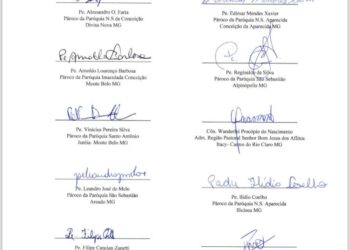 Pe. Alessandro O. Faria
Pároco da Paróquia N.S da Conceição
Divisa Nova MG
Pe. Edimar Mendes Xavier
Pároco da Paróquia N.S. Aparecida
Conceição Aparecida MG
Pe. Arnoldo Lourenço Barbosa
Pároco da Paróquia Imaculada Conceição
Monte Belo MG
Pe. Reginaldo da Silva
Pároco da Paróquia São Sebastião
Alpinópolis MG
Pe. Vinícius Pereira Silva
Pároco da Paróquia Santo Antônio
Juréia- Monte Belo MG
Côn. Wanderlei Procópio do Nascimento
Adm. Região Pastoral Senhor Bom Jesus dos Aflitos
Itacy- Carmo do Rio Claro MG
Pe. Leandro José de Melo
Pároco da Paróquia São Sebastião
Areado MG
Padre Ilídio Coelho
Pe. Ilídio Coelho
Pároco da Paróquia N.S. Aparecida
Ilicínea MG
Pe. Filipe Cancian Zanetti